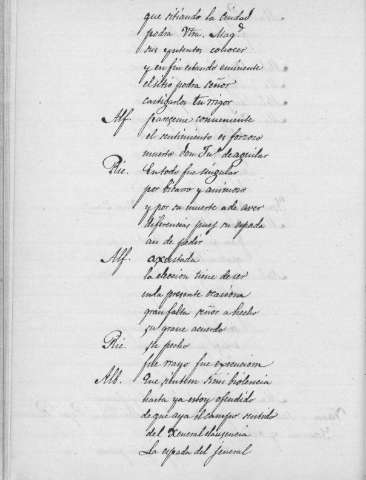 que sitiando la ciudad
podra Vtra. Magd.
sus yntentos conocer
y en fin estando eminente
el sitio podra señor
castigarlos tu rigor
Alf. françeme conueniente
el sentimiento es forzoso
muerto don Jun. de aguilar
Ric. En todo fue singular
por bizarro y animoso
y por su muerte a de aver
diferencias pues su espada
an de pedir
Alf. axestada
la eleccion tiene de ser
en la presente ocasion
gran falta señor a hecho
su graue acuerdo
Ric. su pecho
fue
Alb. Que violencia
hasta ya estoy ofendido
de que aya el campo sentido
del Xeneral la ausencia
La espada del jeneral